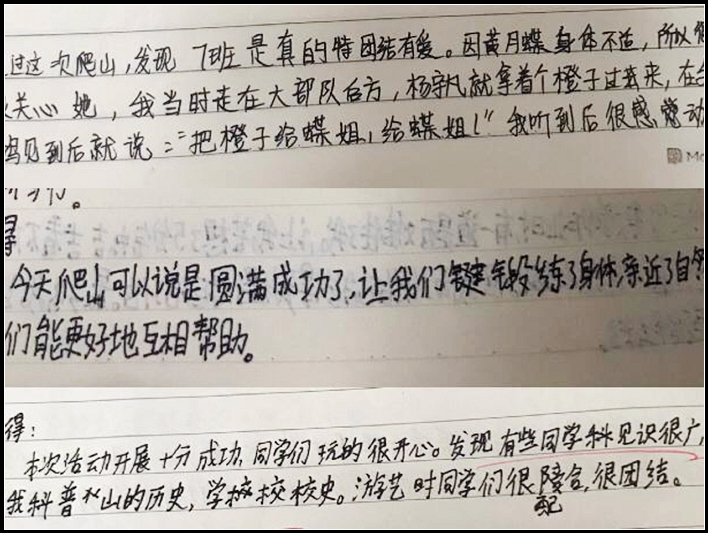 过这次爬山,发现 7班是真的特团结有爱。因黄月蝶身体不适,所以
关心她,我当时走在大部队后方,杨宇凡就拿着个橙子过来,在
见到后就说:“把橙子给蝶姐,给蝶姐!”我听到后很感动
得
今天爬山可以说是圆满成功了,让我们锻练了身体,亲近了自
们能更好地互相帮助。
得:
本次活动开展十分成功,同学们玩的很开心。发现有些同学见识很广,
我科普山的历史,学校校史。游艺时同学们很合,很团结。
配